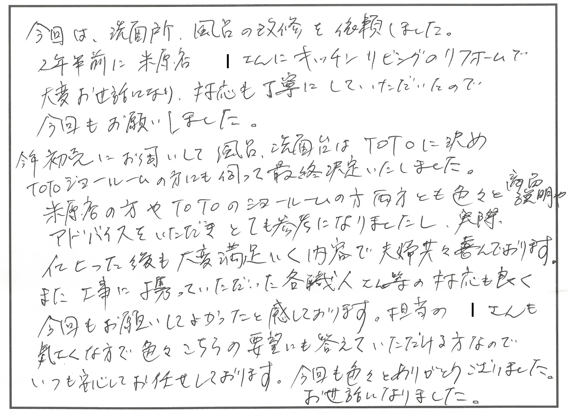 今回は、洗面所、風呂の改修を依頼しました。
2年半前に米原店 I さんにキッチンリビングのリフォームで
大変お世話になり、対応も丁寧にしていただいたので
今回もお願いしました。
今年初売にお伺いして風呂、洗面台はTOTOに決め
TOTOショールームの方にも伺って最終決定いたしました。
米原店の方やTOTOのショールームの方両方とも色々と商品説明や
アドバイスをいただきとても参考になりましたし、実際
仕上った後も大変満足いく内容で夫婦共々喜んでおります。
また工事に携っていただいた各職人さん等の対応も良く
今回もお願いしてよかったと感じております。担当の I さんも
気さくな方で色々こちらの要望にも答えていただける方なので
いつも安心してお任せしております。今回も色々とありがとうございました。
お世話になりました。